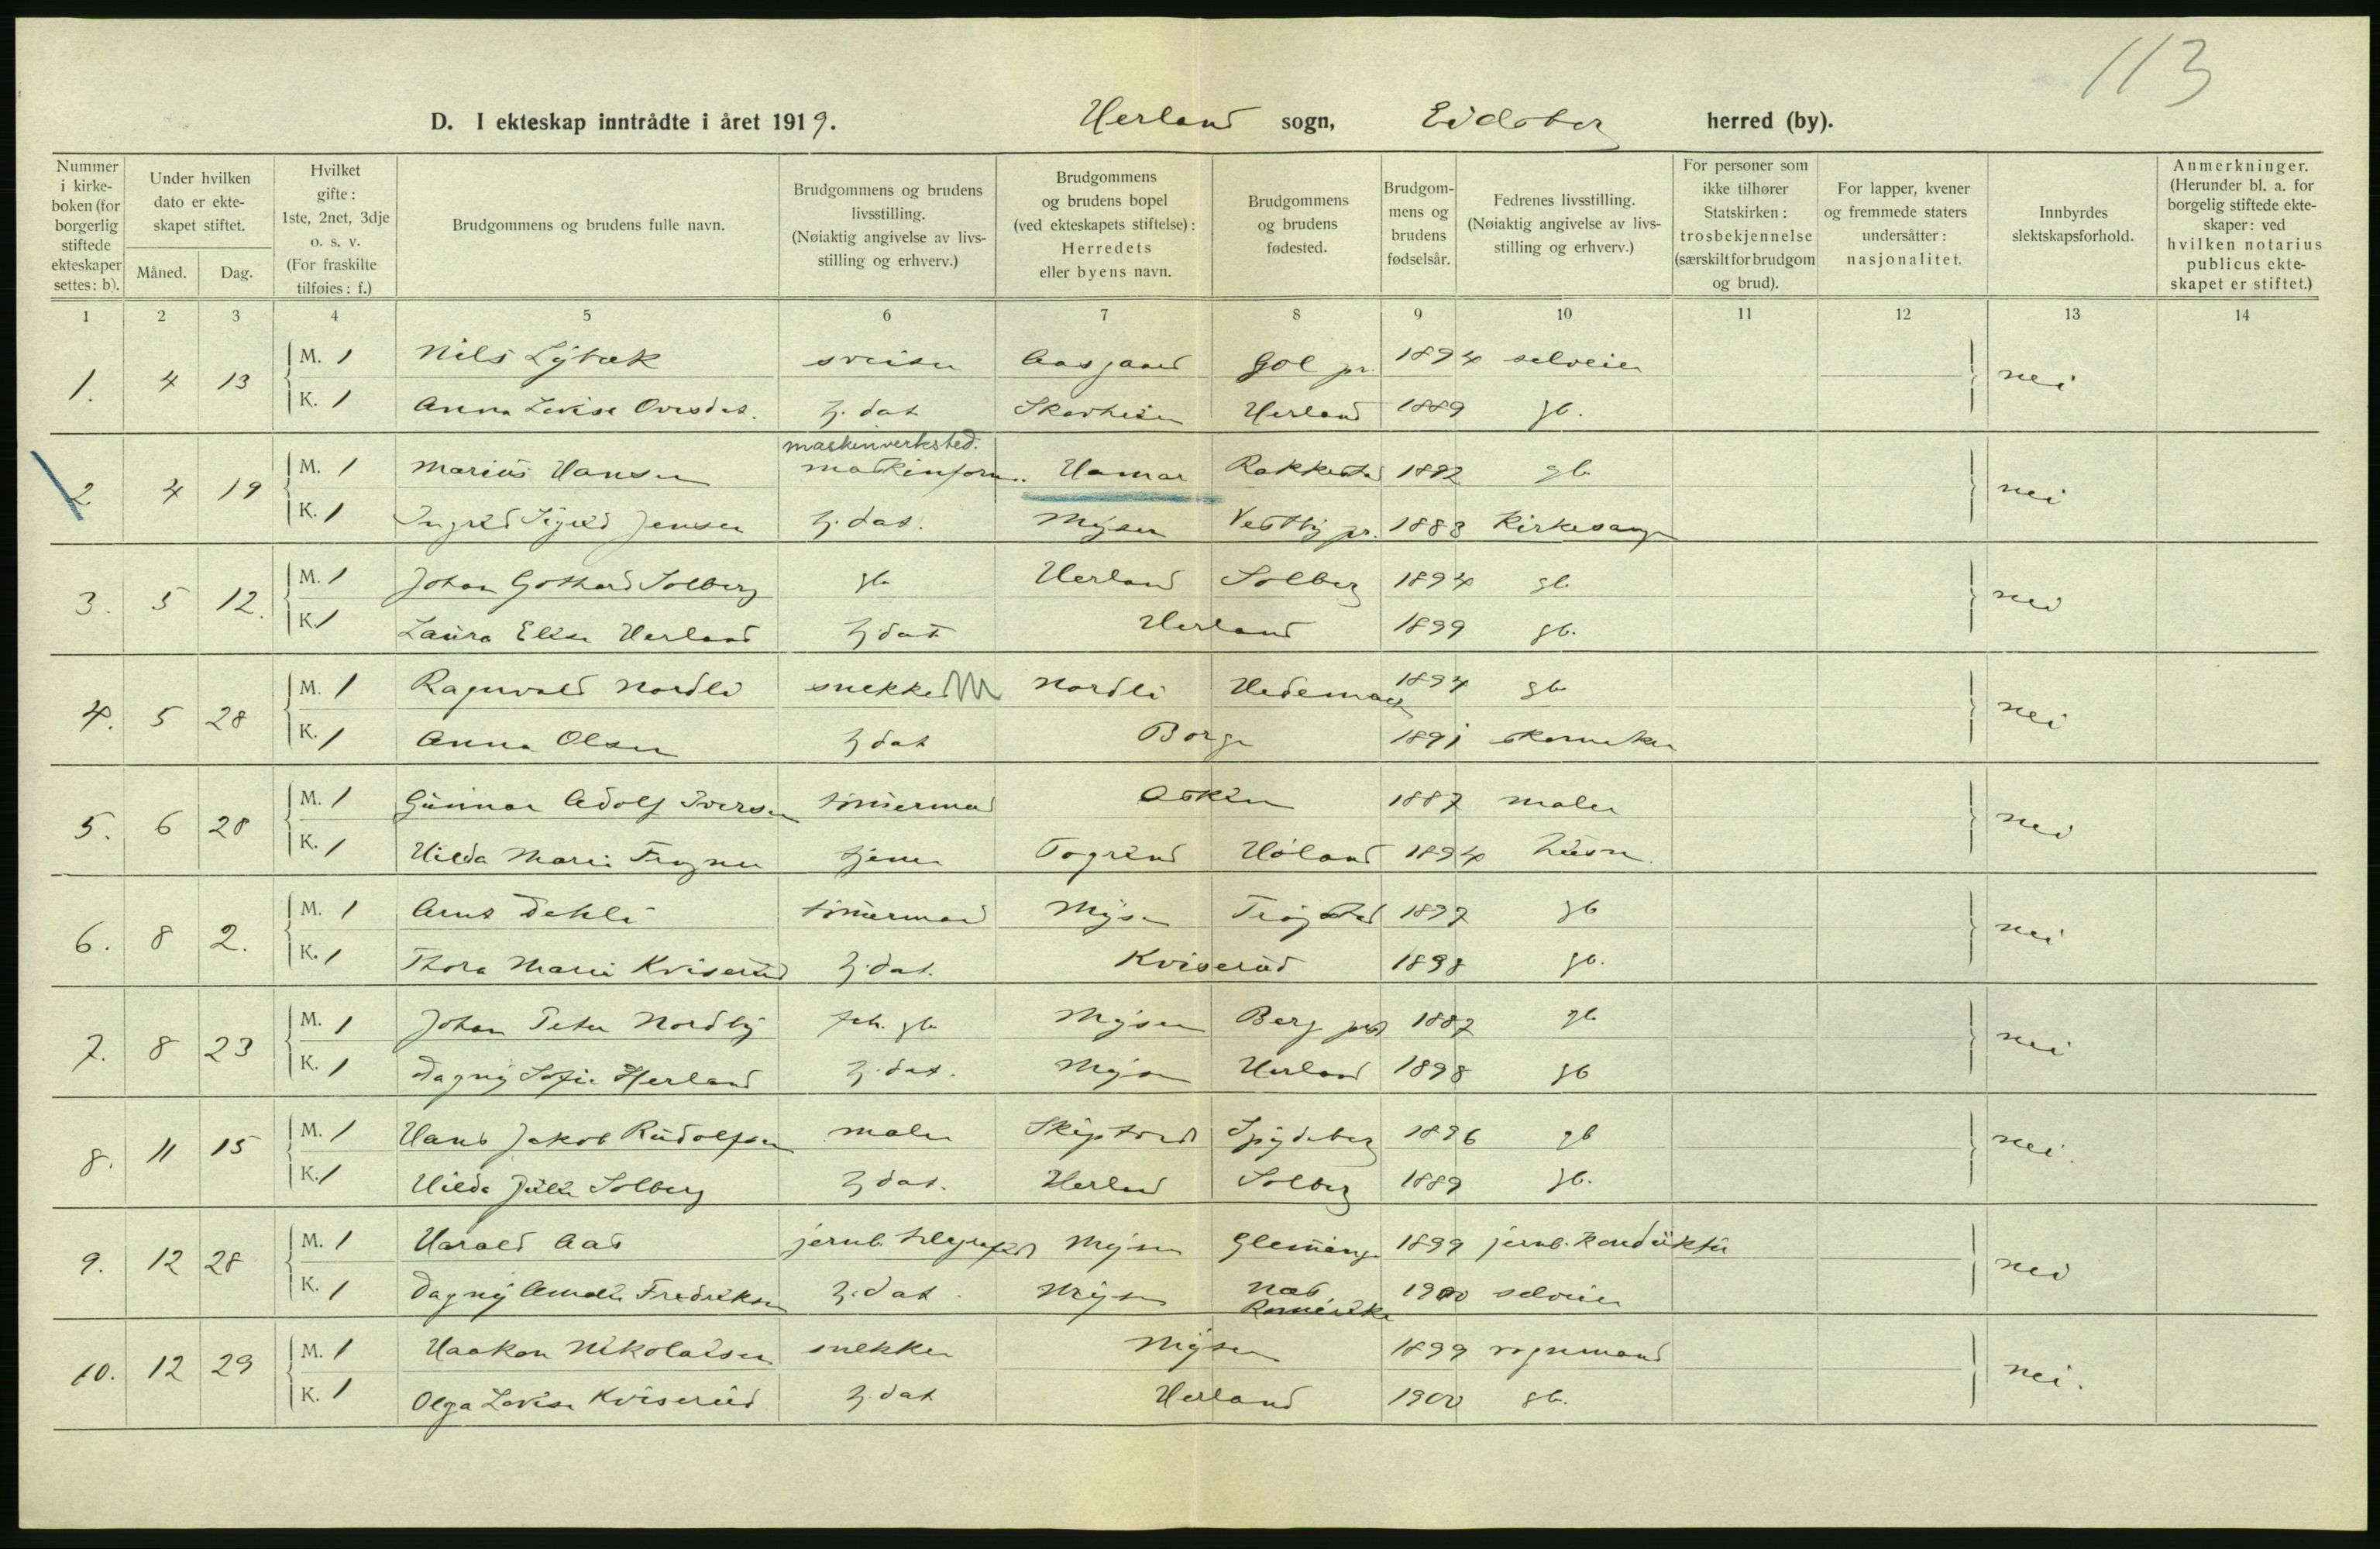 113
D. I ekteskap inntrådte i året 1919. Herland sogn, Eidsberg herred (by).
Nummer i kirkeboken (for borgerlig stiftede ekteskaper settes: b).
Under hvilken dato er ekteskapet stiftet.
Måned. Dag.
Hvilket gifte: 1ste, 2net, 3dje o. s. v. (For fraskilte tilføies: f.)
Brudgommens og brudens fulle navn.
Brudgommens og brudens livsstilling. (Nøiaktig angivelse av livsstilling og erhverv.)
Brudgommens og brudens bopel (ved ekteskapets stiftelse): Herredets eller byens navn.
Brudgommens og brudens fødested.
Brudgommens og brudens fødselsår.
Fedrenes livsstilling. (Nøiaktig angivelse av livsstilling og erhverv.)
For personer som ikke tilhører Statskirken: trosbekjennelse (særskilt for brudgom og brud).
For lapper, kvener og fremmede staters undersåtter: nasjonalitet.
Innbyrdes slektskapsforhold.
Anmerkninger. (Herunder bl. a. for borgelig stiftede ekteskaper: ved hvilken notarius publicus ekteskapet er stiftet.)
1 2 3 4 5 6 7 8 9 10 11 12 13 14
1. 4 13 M. 1 Nils Lybæk sveiser Aasgaard Gol pr. 1894 selveier nei
K. 1 Anna Lovise Ovesdat. hj. dat Skovheim Herland 1889 gb.
maskinverksted.
2 4 19 M. 1 Marius Hansen maskinform. Hamar Rakkestad 1892 gb nei
K. 1 Ingrid Sigrid Jensen hj. dat. Mysen Vestby pr. 1883 Kirkesanger
3. 5 12. M. 1 Johan Gothard Solberg gb Herland Solberg 1894 gb nei
K. 1 Laura Elise Herland hj dat Herland 1899 gb.
4. 5 28 M. 1 Ragnvald Nordli snekker Nordli Hedemark 1894 gb nei
K. 1 Anna Olsen hj dat Borge 1891 skomaker
5. 6 28 M. 1 Gunnar Adolf Iversen tømmermand Askim 1887 maler nei
K. 1 Hilda Marie Frogner tjener Togrind Høland 1894 husm.
6. 8 2. M. 1 Arnt Dehli tømmermand Mysen Trøgstad 1897 gb nei
K. 1 Thora Marie Kviserud hj. dat. Kviserud 1898 gb.
7. 8 23 M. 1 Johan Peter Nordby fh. gb Mysen Berg prst 1887 gb nei
K. 1 Dagny Sofie Herland hj. dat. Mysen Herland 1898 gb
8. 11 15 M. 1 Hans Jakob Rudolfsen maler Skiptvedt Spydeberg 1896 gb nei.
K. 1 Hilda Julie Solberg hj dat. Herland Solberg 1889 gb.
9. 12 28 M. 1 Harald Aas jernb. telegrafist Mysen Glemminge 1899 jernb. konduktør nei
K. 1 Dagny Amalie Fredriksen hj. dat. Mysen Nes Romerike 1900 selveier
10. 12 29 M. 1 Haakon Nikolaisen snekker Mysen 1899 vognmand nei.
K. 1 Olga Lovise Kviserud hj dat Herland 1900 gb.